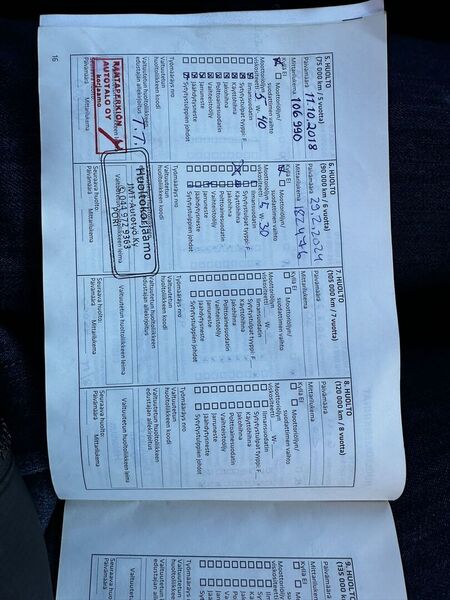 5. HUOLTO
(75 000 km / 5 vuotta)
Päivämäärä 11.10.2018
Mittarilukema 106 990
Kyllä Ei
Moottoriöljyn/
suodattimen vaihto
Moottoriöljyn
viskositeetti 5 W- 40
Ilmansuodatin
Sytytystulpat tyyppi F
Käyttöhihna
Jakohihna
Polttoainesuodatin
Vaihteistoöljy
Jarruneste
Jäähdytysneste
Sytytystulppien johdot
Työmääräys nro
Valtuutetun
huoltoliikkeen koodi
Valtuutetun huoltoliikkeen
edustajan allekirjoitus
RANTAPERKIÖN
AUTOTALO OY
korjaamo
Seuraava huolto:
Päivämäärä Mittarilukema
6. HUOLTO
(90 000 km / 6 vuotta)
Päivämäärä 29.2.2024
Mittarilukema 187 476
Kyllä Ei
Moottoriöljyn/
suodattimen vaihto
Moottoriöljyn
viskositeetti 5 W- 30
Ilmansuodatin
Sytytystulpat tyyppi F
Käyttöhihna
Jakohihna
Polttoainesuodatin
Vaihteistoöljy
Jarruneste
Jäähdytysneste
Sytytystulppien johdot
Työmääräys nro
Valtuutetun
huoltoliikkeen koodi
Huoltokorjaamo
JMT-Autotyö Ky
PORI
Seuraava huolto:
Päivämäärä Mittarilukema
7. HUOLTO
(105 000 km / 7 vuotta)
Päivämäärä
Mittarilukema
Kyllä Ei
Moottoriöljyn/
suodattimen vaihto
Moottoriöljyn
viskositeetti W-
Ilmansuodatin
Sytytystulpat tyyppi F
Käyttöhihna
Jakohihna
Polttoainesuodatin
Vaihteistoöljy
Jarruneste
Jäähdytysneste
Sytytystulppien johdot
Työmääräys nro
Valtuutetun
huoltoliikkeen koodi
Valtuutetun huoltoliikkeen
edustajan allekirjoitus
Valtuutetun huoltoliikkeen leima
Seuraava huolto:
Päivämäärä Mittarilukema
8. HUOLTO
(120 000 km / 8 vuotta)
Päivämäärä
Mittarilukema
Kyllä Ei
Moottoriöljyn/
suodattimen vaihto
Moottoriöljyn
viskositeetti W-
Ilmansuodatin
Sytytystulpat tyyppi F
Käyttöhihna
Jakohihna
Polttoainesuodatin
Vaihteistoöljy
Jarruneste
Jäähdytysneste
Sytytystulppien johdot
Työmääräys nro
Valtuutetun
huoltoliikkeen koodi
Valtuutetun huoltoliikkeen
edustajan allekirjoitus
Valtuutetun huoltoliikkeen leima
Seuraava huolto:
Päivämäärä Mittarilukema
16
9. HUOLTO
(135 000 km
Päivämäärä
Mittarilukema
Kyllä Ei